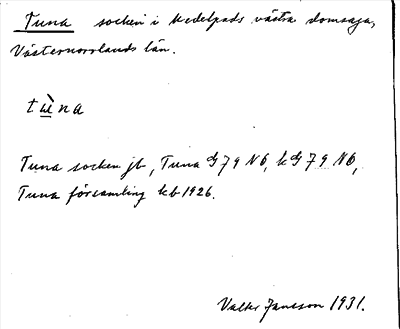 Tuna socken i Medelpads västra domsaga,
Västernorrlands län.
tùna
Tuna socken jb, Tuna G79 NÖ, k G79 NÖ,
Tuna församling kb 1926.
Valter Jansson 1931.